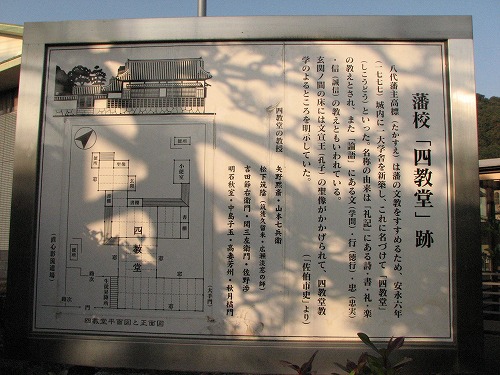 藩校「四教堂」跡
八代藩主高標(たかすえ)は藩の文教をすすめるため、安永六年
(一七七七)城内に一大学舎を新築し、これに名づけて「四教堂」
(しこうどう)といった。名称の由来は「礼記」にある詩・書・礼・楽
の教えとされ、また「論語」にある文(学問)・行(徳行)・忠(忠実)
・信(誠信)の教えともいわれている。
玄関ノ間の床には文宣王(孔子)の聖像がかかげられて、四教堂教
学のよるところを明示していた。
(「佐伯市史」より)
四教堂の教授
矢野黙斎・山本七兵衛
松下筑陰(筑後久留米・広瀬淡窓の師)
吉田
右衛門・関三左衛門・佐野沙
明石秋室・中島子玉・高妻芳州・秋月橘門
四教堂
四教堂平面図と正面図